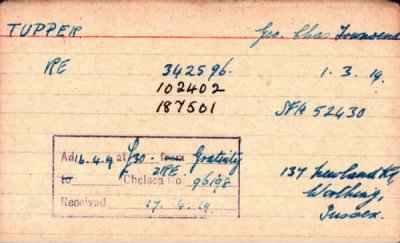 TUPPER Geo. Chas Townsend
RE 342596. 1. 3. 19.
102402
187501 SFA 52430
Ad 16.4.19 at £30 - Gratuity
to 2RE.
Chelsea No. 96198
Received 17. 4. 19.
137 Newland Rd,
Worthing,
Sussex.